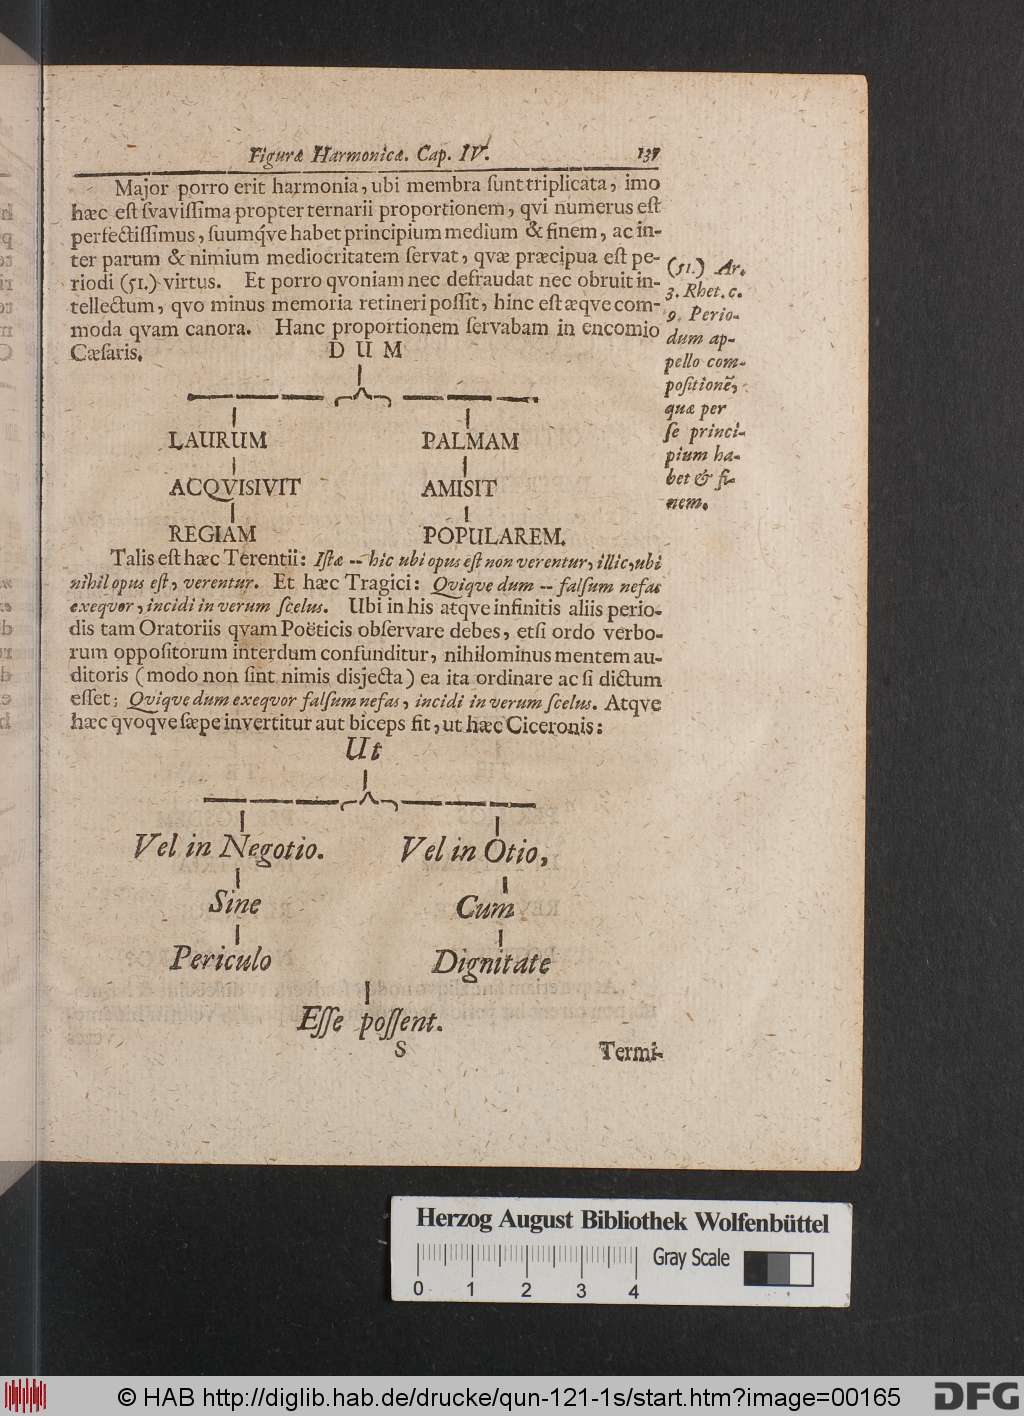 Figuræ Harmonicæ. Cap. IV. 137
Major porro erit harmonia, ubi membra ſunt triplicata, imo
hæc eſt ſvaviſſima propter ternarii proportionem, qvi numerus eſt
perfectiſſimus, ſuumq́ve habet principium medium & finem, ac in-
ter parum & nimium mediocritatem ſervat, qvæ præcipua eſt pe-
riodi (51.) virtus. Et porro qvoniam nec defraudat nec obruit in-
tellectum, qvo minus memoria retineri poſſit, hinc eſt æqve com-
moda qvam canora. Hanc proportionem ſervabam in encomio
Cæſaris.
(51.) Ar.
3. Rhet. c.
9. Perio-
dum ap-
pello com-
poſitionẽ,
quæ per
ſe princi-
pium ha-
bet & fi-
nem.
DUM
LAURUM PALMAM
ACQVISIVIT AMISIT
REGIAM POPULAREM.
Talis eſt hæc Terentii: Iſtæ -- hic ubi opus eſt non verentur, illic, ubi
nihil opus eſt, verentur. Et hæc Tragici: Qviqve dum -- falſum nefas
exeqvor, incidi in verum ſcelus. Ubi in his atqve infinitis aliis perio-
dis tam Oratoriis qvam Poëticis obſervare debes, etſi ordo verbo-
rum oppoſitorum interdum confunditur, nihilominus mentem au-
ditoris (modo non ſint nimis disjecta) ea ita ordinare ac ſi dictum
eſſet; Qviqve dum exeqvor falſum nefas, incidi in verum ſcelus. Atqve
hæc qvoqve ſæpe invertitur aut biceps fit, ut hæc Ciceronis:
Ut
Vel in Negotio. Vel in Otio,
Sine Cum
Periculo Dignitate
Eſſe poſſent.
S Termi-
Herzog August Bibliothek Wolfenbüttel
Gray Scale
0 1 2 3 4
© HAB http://diglib.hab.de/drucke/qun-121-1s/start.htm?image=00165 DFG